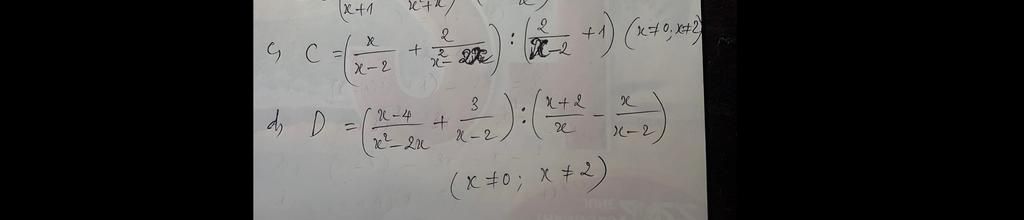 (x+1 x²+x) ( x)
c, C = (x/(x-2) + 2/(x²-2x)) : (2/(x-2) + 1) (x≠0; x≠2)
d, D = ((x-4)/(x²-2x) + 3/(x-2)) : ((x+2)/x - x/(x-2))
(x≠0; x≠2)